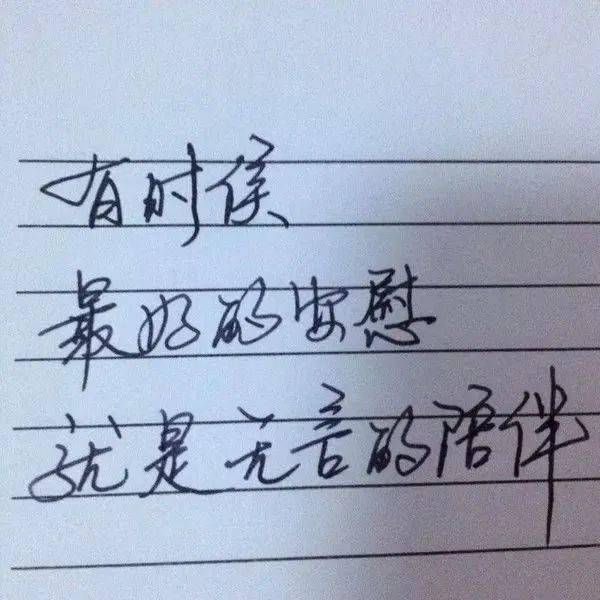 有时候
最好的安慰
就是无言的陪伴